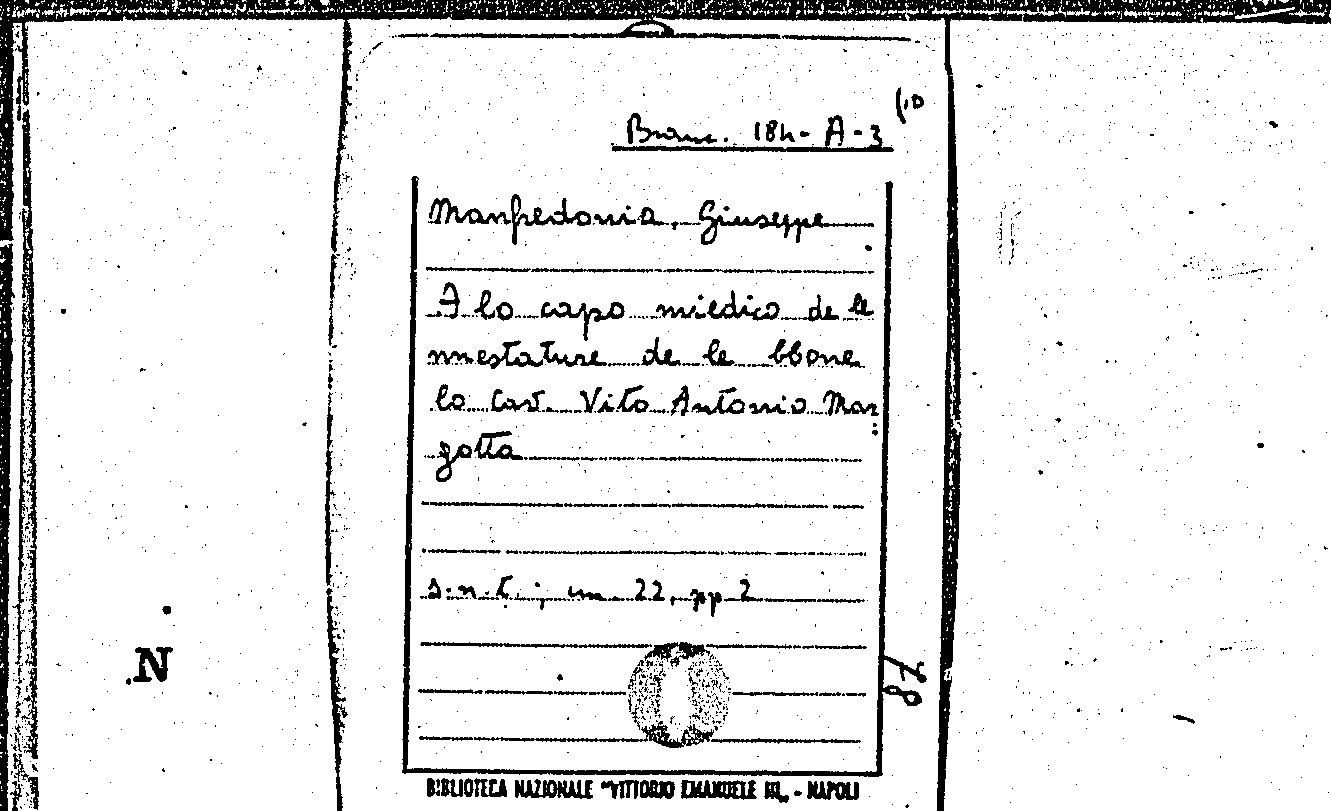 (10
Branc. 18h- A-3
Manfredonia, Giuseppe
A lo capo miedico de le
mmestature de le bbone
lo Cav. Vito Antonio Mar
gotta
s.n.t.; cm. 22, pp 2
N
BIBLIOTECA NAZIONALE "VITTORIO EMANUELE III„ - NAPOLI